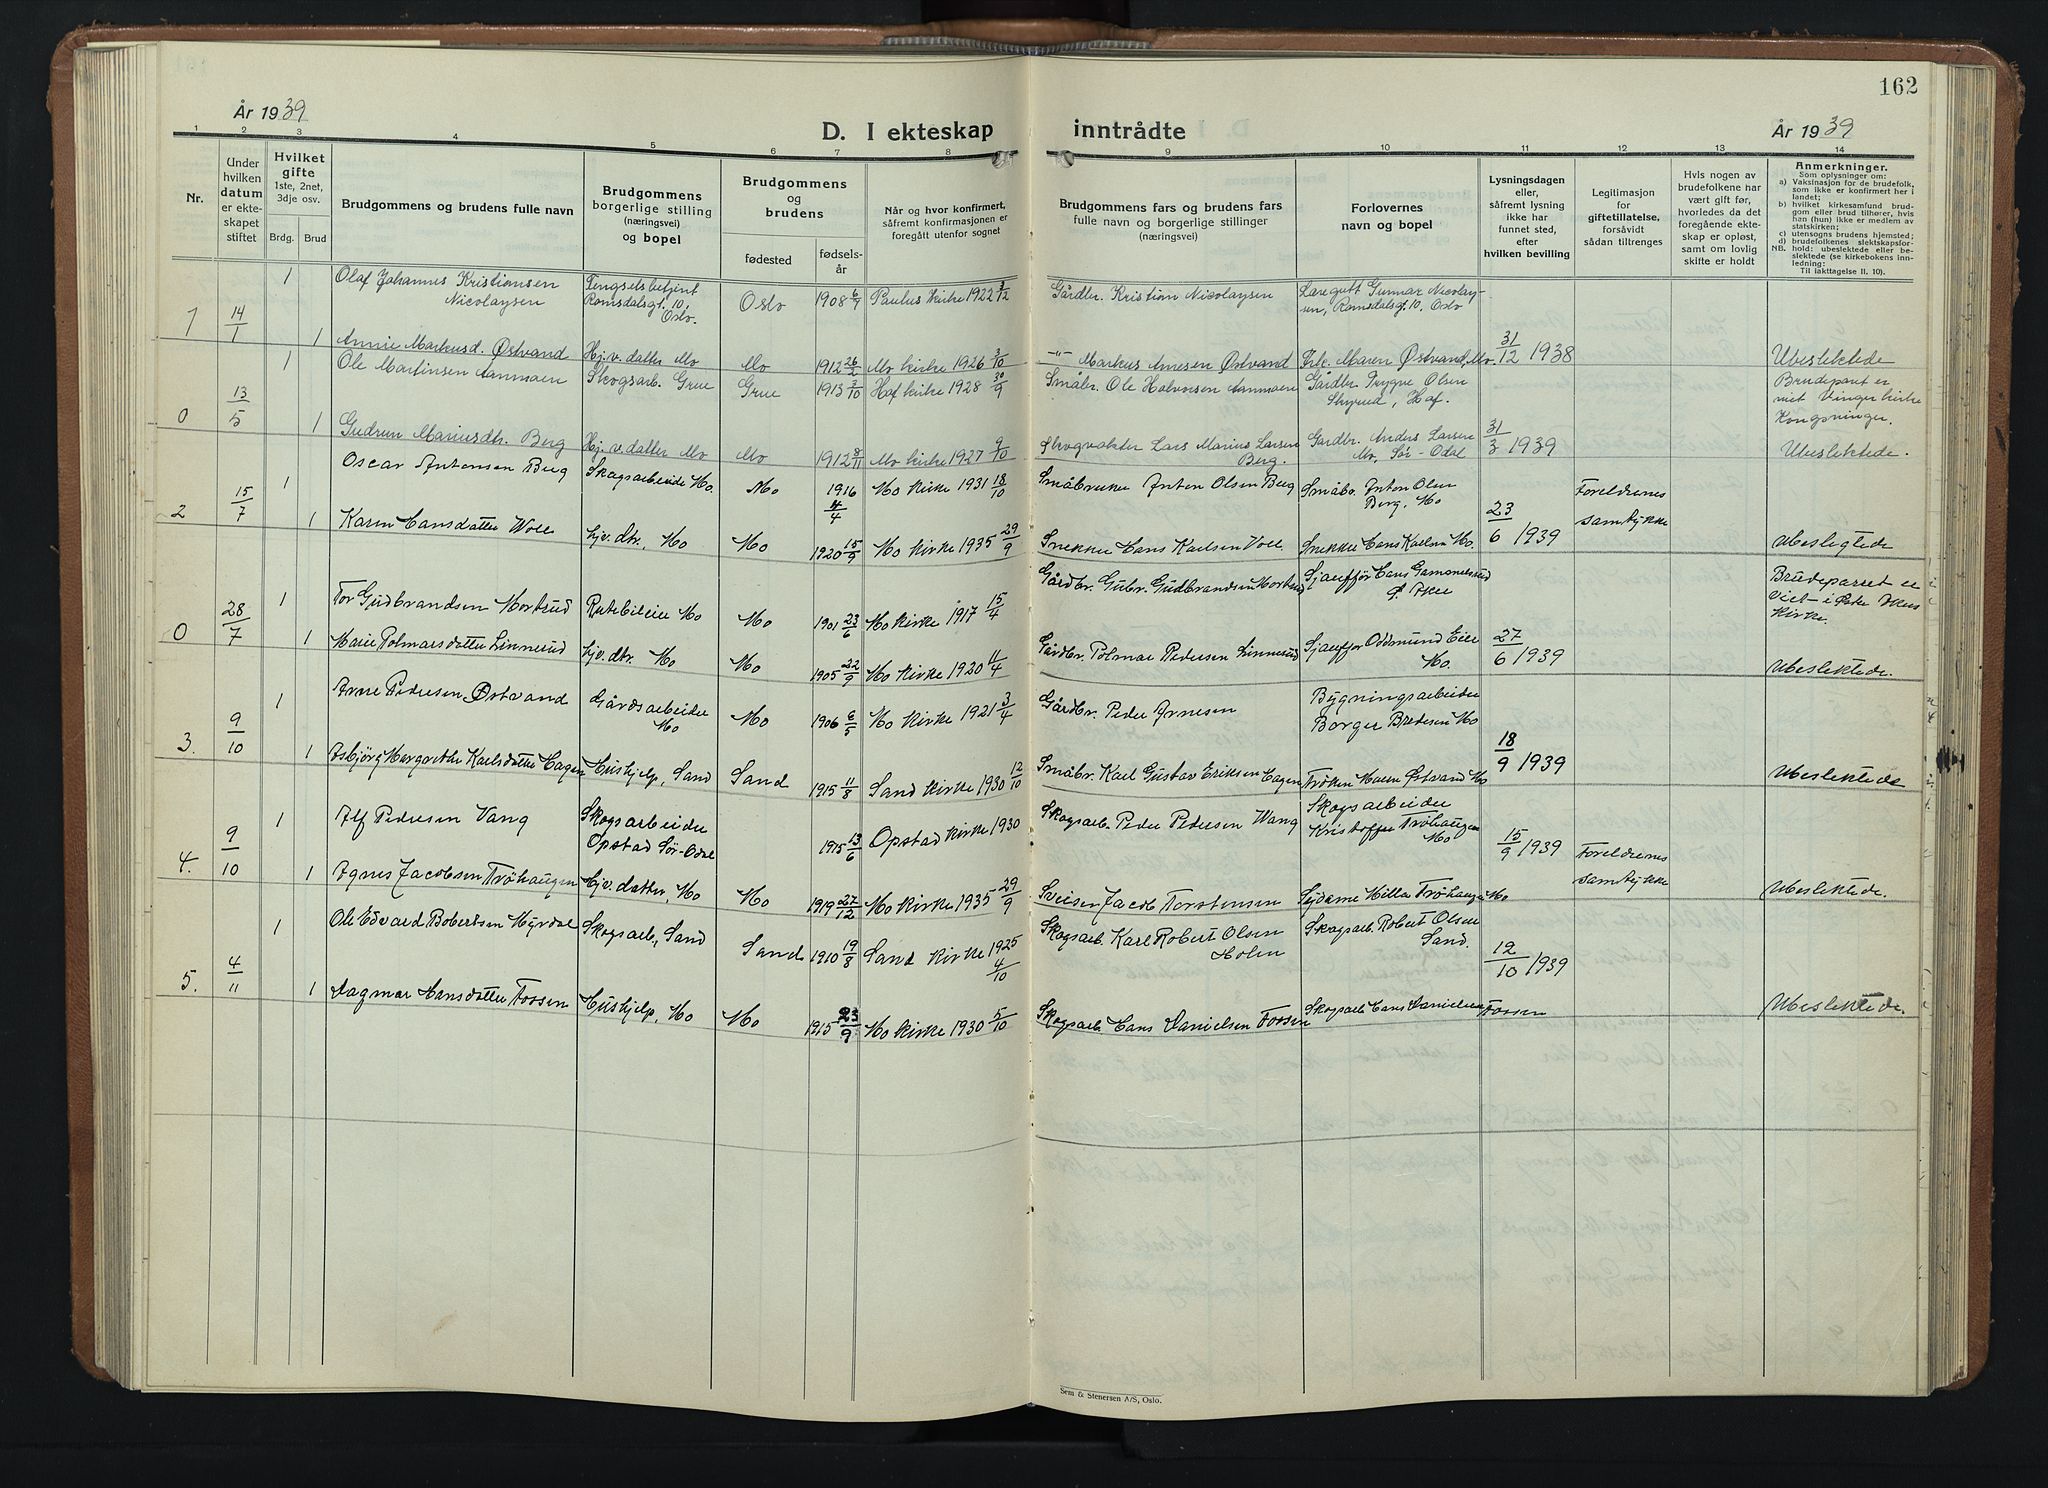 162
År 1939
D. I ekteskap inntrådte
År 1939
1 2 3 4 5 6 7 8 9 10 11 12 13 14
Nr.
Under hvilken datum er ekteskapet stiftet
Hvilket gifte 1ste, 2net, 3dje osv.
Brdg. Brud
Brudgommens og brudens fulle navn
Brudgommens borgerlige stilling (næringsvei) og bopel
Brudgommens og brudens
fødested
fødselsår
Når og hvor konfirmert, såfremt konfirmasjonen er foregått utenfor sognet
Brudgommens fars og brudens fars fulle navn og borgerlige stillinger (næringsvei)
Forlovernes navn og bopel
Lysningsdagen eller, såfremt lysning ikke har funnet sted, efter hvilken bevilling
Legitimasjon for giftetillatelse, forsåvidt sådan tiltrenges
Hvis nogen av brudefolkene har vært gift før, hvorledes da det foregående ekteskap er opløst, samt om lovlig skifte er holdt
Anmerkninger.
Som oplysninger om:
a) Vaksinasjon for de brudefolk, som ikke er konfirmert her i landet;
b) hvilket kirkesamfund brudgom eller brud tilhører, hvis han (hun) ikke er medlem av statskirken;
c) utensogns brudens hjemsted;
d) brudefolkenes slektskapsforhold: ubeslektede eller beslektede (se kirkebokens innledning:
NB.
Til iakttagelse II, 10).
1 14/1 1 Olaf Johannes Kristiansen Nicolaysen Fengselsbetjent Romsdalsgt. 10, Oslo. Oslo 1908 6/7 Paulus kirke 1922 3/12 Gårdbr. Kristian Nicolaysen Læregutt Gunnar Nicolaysen, Romsdalsgt. 10, Oslo
1 Annie Markusd. Østvand Hj.v. datter Mo Mo 1912 26/2 Mo kirke 1926 3/10 -"- Markus Arnesen Østvand Frk. Maren Østvand, Mo. 31/12 1938 Ubeslektede
0 13/5 1 Ole Martinsen Aanmoen Skogsarb. Grue Grue 1913 3/10 Hof kirke 1928 30/9 Småbr. Ole Halvorsen Aanmoen Gårdbr. Trygve Olsen Skyrud, Hof. Brudeparet er viet Vinger kirke Kongsvinger.
1 Gudrun Mariusdtr. Berg Hj.v. datter Mo Mo 1912 8/11 Mo kirke 1927 9/10 Skogvokter Lars Marius Larsen Berg. Gardbr. Anders Larsen Mo, Sør-Odal 31/3 1939 Ubeslektede.
2 15/7 1 Oscar Antonsen Berg Skogsarbeide Mo. Mo 1916 4/4 Mo Kirke 1931 18/10 Småbruker Anton Olsen Berg Småbr. Anton Olsen Berg, Mo Foreldrenes samtykke
1 Karin Hansdatter Woll Hjv. dtr., Mo Mo 1920 15/9 Mo Kirke 1935 29/9 Snekker Hans Karlsen Voll. Snekker Hans Karlsen Mo. 23/6 1939 Ubeslegtede
0 28/7 1 Tor Gudbrandsen Mortrud Rutebileier Mo Mo 1901 23/6 Mo Kirke 1917 15/4 Gårdbr. Gubr. Gudbrandsen Mortrud Sjauffør Hans Gamanelsrud Ø. Aker Brudeparret er viet i Østre Aker Kirke.
1 Marie Polmarsdatter Linnerud Hjv. dtr. Mo Mo 1905 22/9 Mo Kirke 1920 11/4 Gårdbr. Polmar Pedersen Linnerud Sjauffør Oddmund Eier Mo. 27/6 1939 Ubeslektede.
3. 9/10 1 Arne Pedersen Østvand Gårdsarbeider Mo Mo 1906 6/5 Mo Kirke 1921 3/4 Gårdbr. Peder Arnesen Bygningsarbeider Borger Bredesen Mo
1 Asbjørg Margrethe Karlsdatter Hagen Hushjelp, Sand Sand 1915 11/8 Sand Kirke 1930 12/10 Småbr. Karl Gustav Eriksen Hagen Frøken Maren Østvand Mo 18/9 1939 Ubeslektede
4. 9/10 1 Alf Pedersen Vang Skogsarbeider Opstad Sør-Odal 1915 13/6 Opstad Kirke 1930 Skogsarb. Peder Pedersen Wang Skogsarbeider Kristoffer Trøhaugen Mo 15/9 1939 Foreldrenes samtykke
1 Agnes Jacobsen Trøhaugen Hjv. datter, Mo Mo 1919 27/12 Mo Kirke 1935 29/9 Sveisen Jacob Torstensen Sydame Milla Trøhaugen Mo Ubeslektede.
5. 4/11 1 Ole Edvard Robertsen Myrdal Skogsarb., Sand Sand 1910 19/8 Sand Kirke 1925 4/10 Skogsarb. Karl Robert Olsen Holen Skogsarb. Robert Olsen Sand. 12/10 1939
1 Dagmar Hansdatter Fossen Hushjelp, Mo Mo 1915 23/9 Mo Kirke 1930 5/10 Skogsarb. Hans Danielsen Fossen Skogsarb Hans Danielsen Fossen Ubeslektede.
Sem & Stenersen A/S, Oslo.